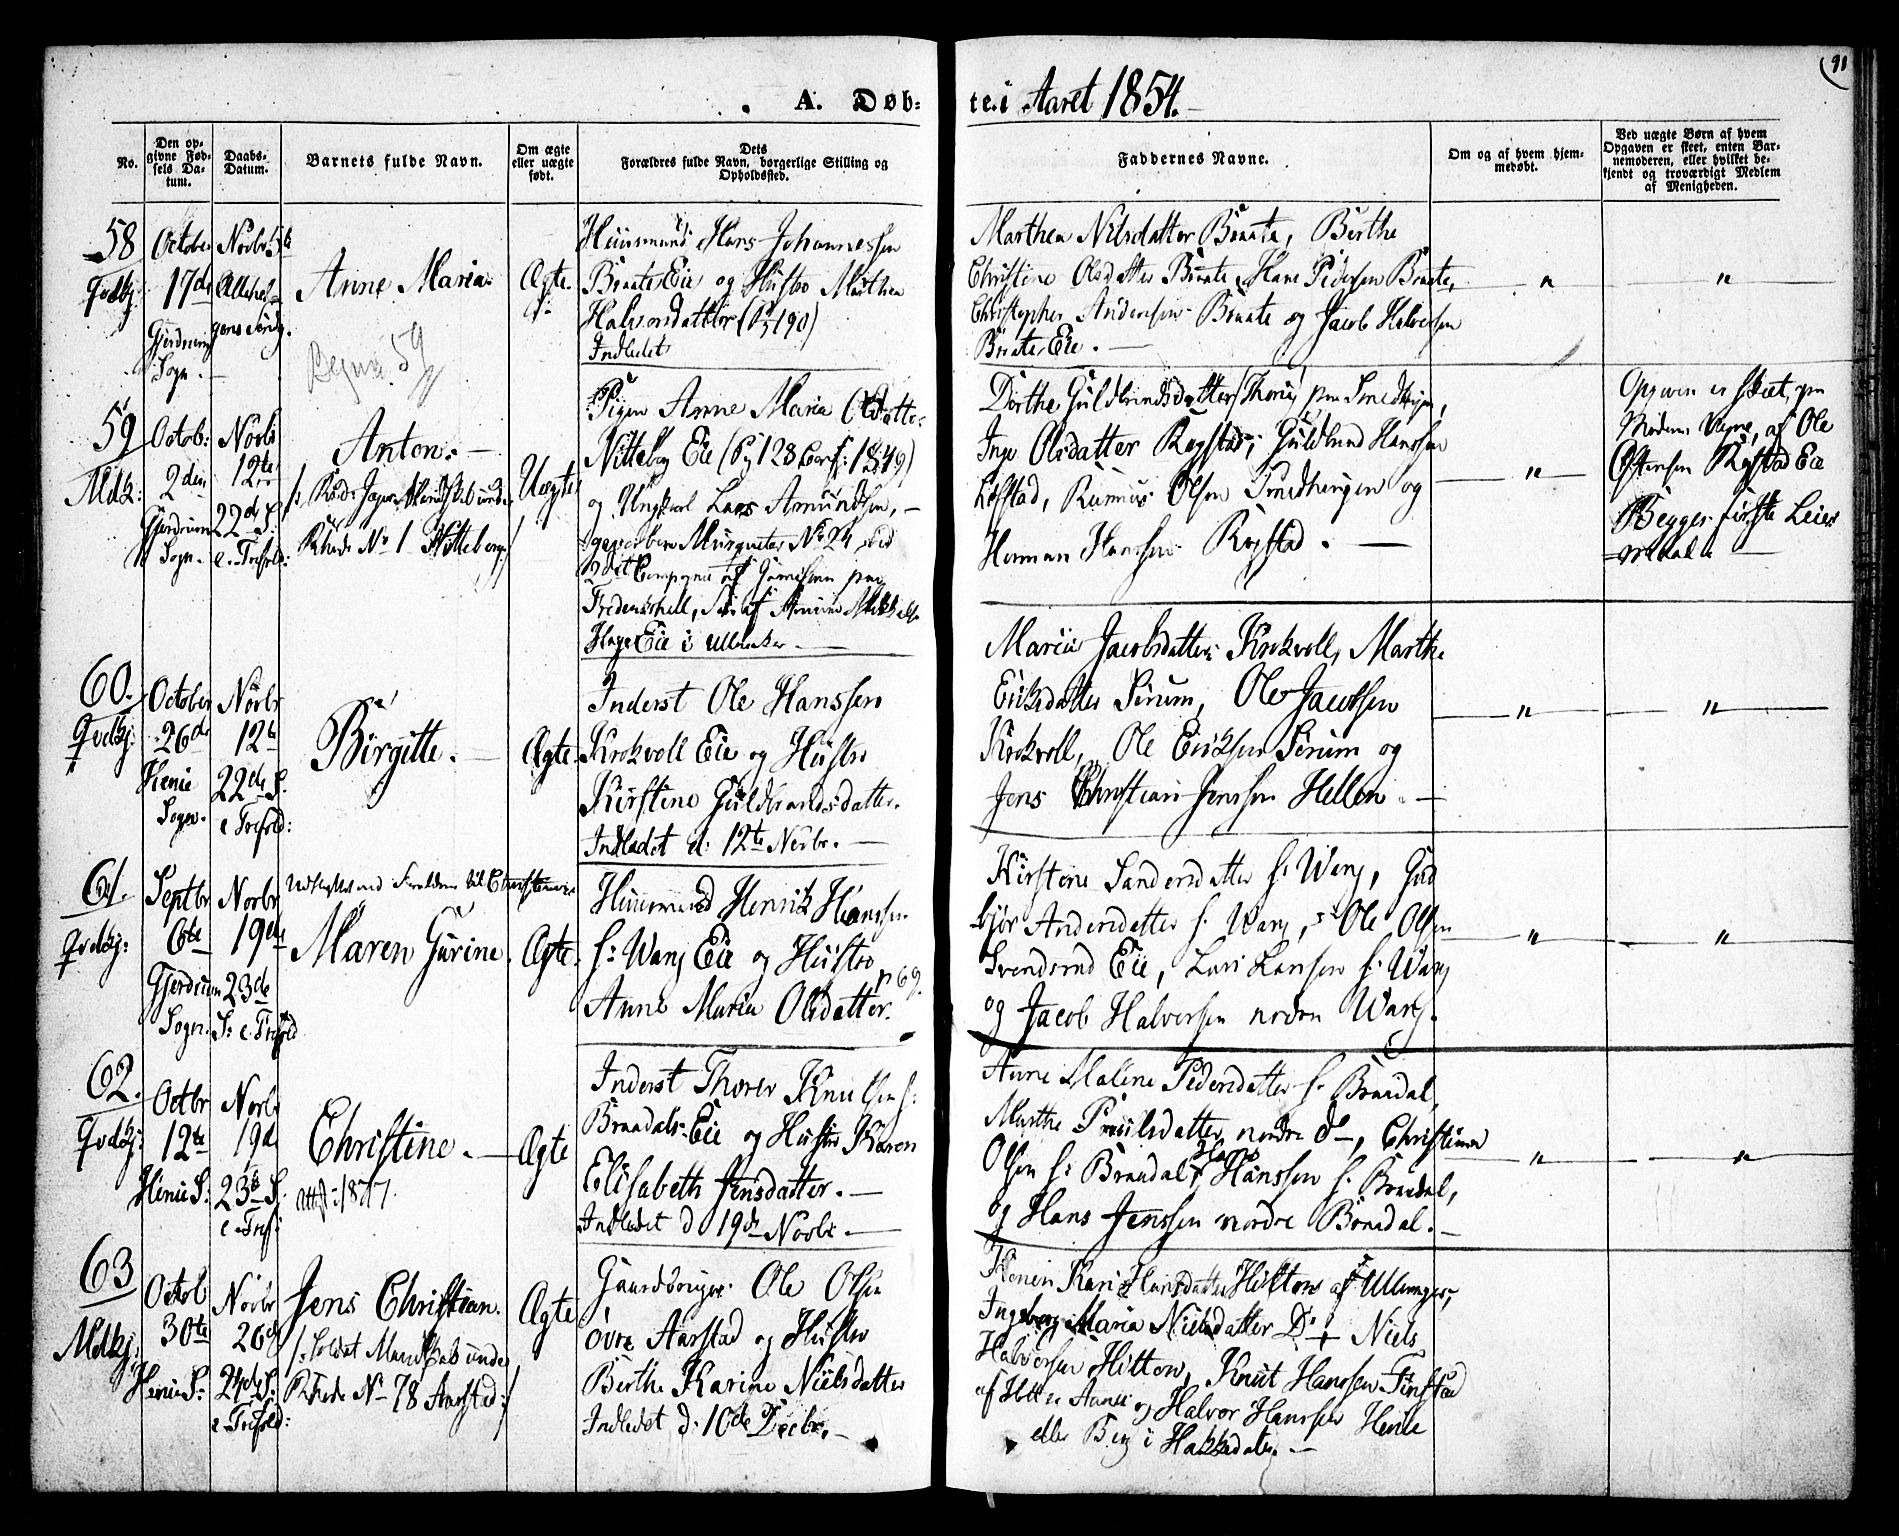 91
A. Døb-
te i Aaret 1854.
No.
Den op-
givne Fød-
sels Da-
tum.
Daabs-
Datum.
Barnets fulde Navn.
Om ægte
eller uægte
født.
Dets
Forældres fulde Navn, borgerlige Stilling og
Opholdssted.
Faddernes Navne.
Om og af hvem hjem-
medøbt.
Ved uægte Børn af hvem
Opgaven er skeet, enten Bar-
nemoderen, eller hvilket be-
kjendt og troværdigt Medlem
af Menigheden.
58
Qvdkj:
October
17de
Gjerdrum
Sogn.
Novbr: 5te
Allehel-
gens Sønd.
Anne Maria.
Ægte.
Huusmand Hans Johannessen
Braate Eie og Hustro Marthea
Halvorsdatter (P. 190)
Indledet
Marthea Nilsdatter Braate, Birthe
Christine Olsdatter Braate, Hans Pedersen Braate,
Christopher Andersen Braate og Jacob Halvorsen
Braate Eie.
"
"
59
Mdkj:
Octob:
2den
Gjerdrum
Sogn.
Novbr
12te
22de S.
e. Trefold:
Anton.
Rhede No 1 Nitteberg
Uægte
Pigen Anne Maria Olsdatter
Nitteberg Eie (P. 128 Conf: 1849)
og Ungkarl Lars Amundsen,
geworben Musqueter No 24 ved
2det Compagnie af Garnisonen paa
Fredrikshald, Søn af Amund
Hage Eie i Ullensaker.
Dorthe Guldbrandsdatter
Inge Olsdatter Rogstad, Guldbrand Hanssen
Løfstad, Rasmus Olsen Smedhaugen og
Herman Hanssen Rogstad.
"
Opgaven er skeet, paa
Moderens Vegne, af Ole
Ostensen Rogstad Eie
Begges første Leier-
maal.
60.
Qvdkj:
October
26de
Henie
Sogn.
Novbr
12te
22de S.
e Trefold:
Birgitte.
Ægte.
Inderst Ole Hanssen
Krokvoll Eie og Hustro
Kirstine Guldbrandsdatter.
Indledet d. 12te Novbr.
Maria Jacobsdatter Krokvoll, Marthe
Eriksdatter Sørum, Ole Jacobsen
Krokvoll, Ole Eriksen Sørum og
Jens Christian Jenssen Hellen.
"
"
61.
Qvdkj:
Septbr
6te
Gjerdrum
Sogn.
Novbr
19de
23de
S. e. Trefold
Udflyttet med Forældrene til Christiania
Maren Gurine.
Ægte.
Huusmand Henrik Hanssen
s: Wang Eie og Hustro
p 69.
Anne Maria Olsdatter.
Kirstine Sandersdatter s: Wang, Gud
bjør Andersdatter s. Wang, Ole Olsen
Svendsrud Eie, Lars Larssen s. Wang
og Jacob Halvorsen nordre Wang.
"
"
62.
Qvdkj:
Octbr
12te
Henie S:
Novbr
19de
23de S.
e. Tref:
Christine.
Att: 1877.
Ægte
Inderst Thorer Knudsen s:
Braadals Eie og Hustro Karen
Elisabeth Jensdatter.
Indledet d 19de Novbr.
Anne Malene Pedersdatter s. Braadal,
Marthe Poulsdatter nordre do, Christian
Olsen s: Braadal, Hans Hanssen s. Braadal,
og Hans Jenssen nordre Braadal.
"
"
63
Mdkj:
Octob
30te
Henie S:
Novbr
26de
24de S.
e Trefold:
Jens Christian.
/: Soldat Mandskab under
Rhede No 78 Aarstad :/
Ægte
Gaardbruger Ole Olsen
øvre Aarstad og Hustro
Berthe Karine Nielsdatter
Indledet d: 10de Decbr.
Konen Kari Hansdatter Hilton af Ullensager,
Ingeborg Maria Nielsdatter Do, Niels
Halvorsen Hilton, Knut Hanssen Finstad
og Halvor Hanssen Henie
eller Berg i Hakkedalen.